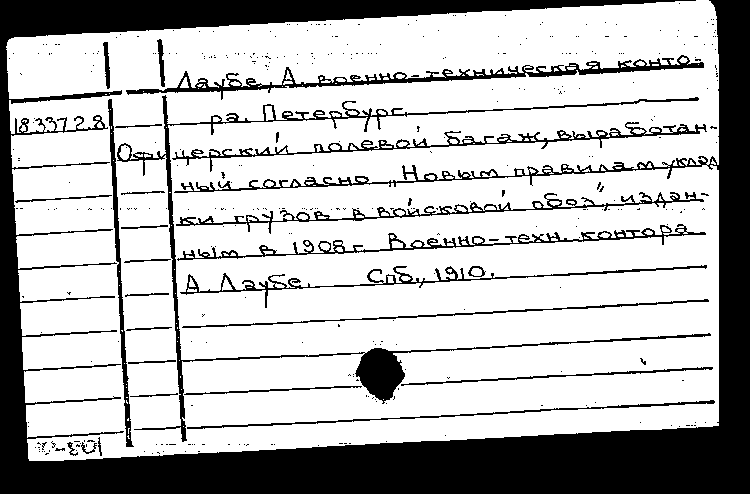 Лаубе, А. военно-техническая конто-
18.337.2.8 ра. Петербург.
Офицерский полевой багаж, выработан-
ный согласно „Новым правилам уклад
ки грузов в войсковой обоз", издан-
ным в 1908 г. Военно-техн. контора
А. Лаубе. Спб., 1910.